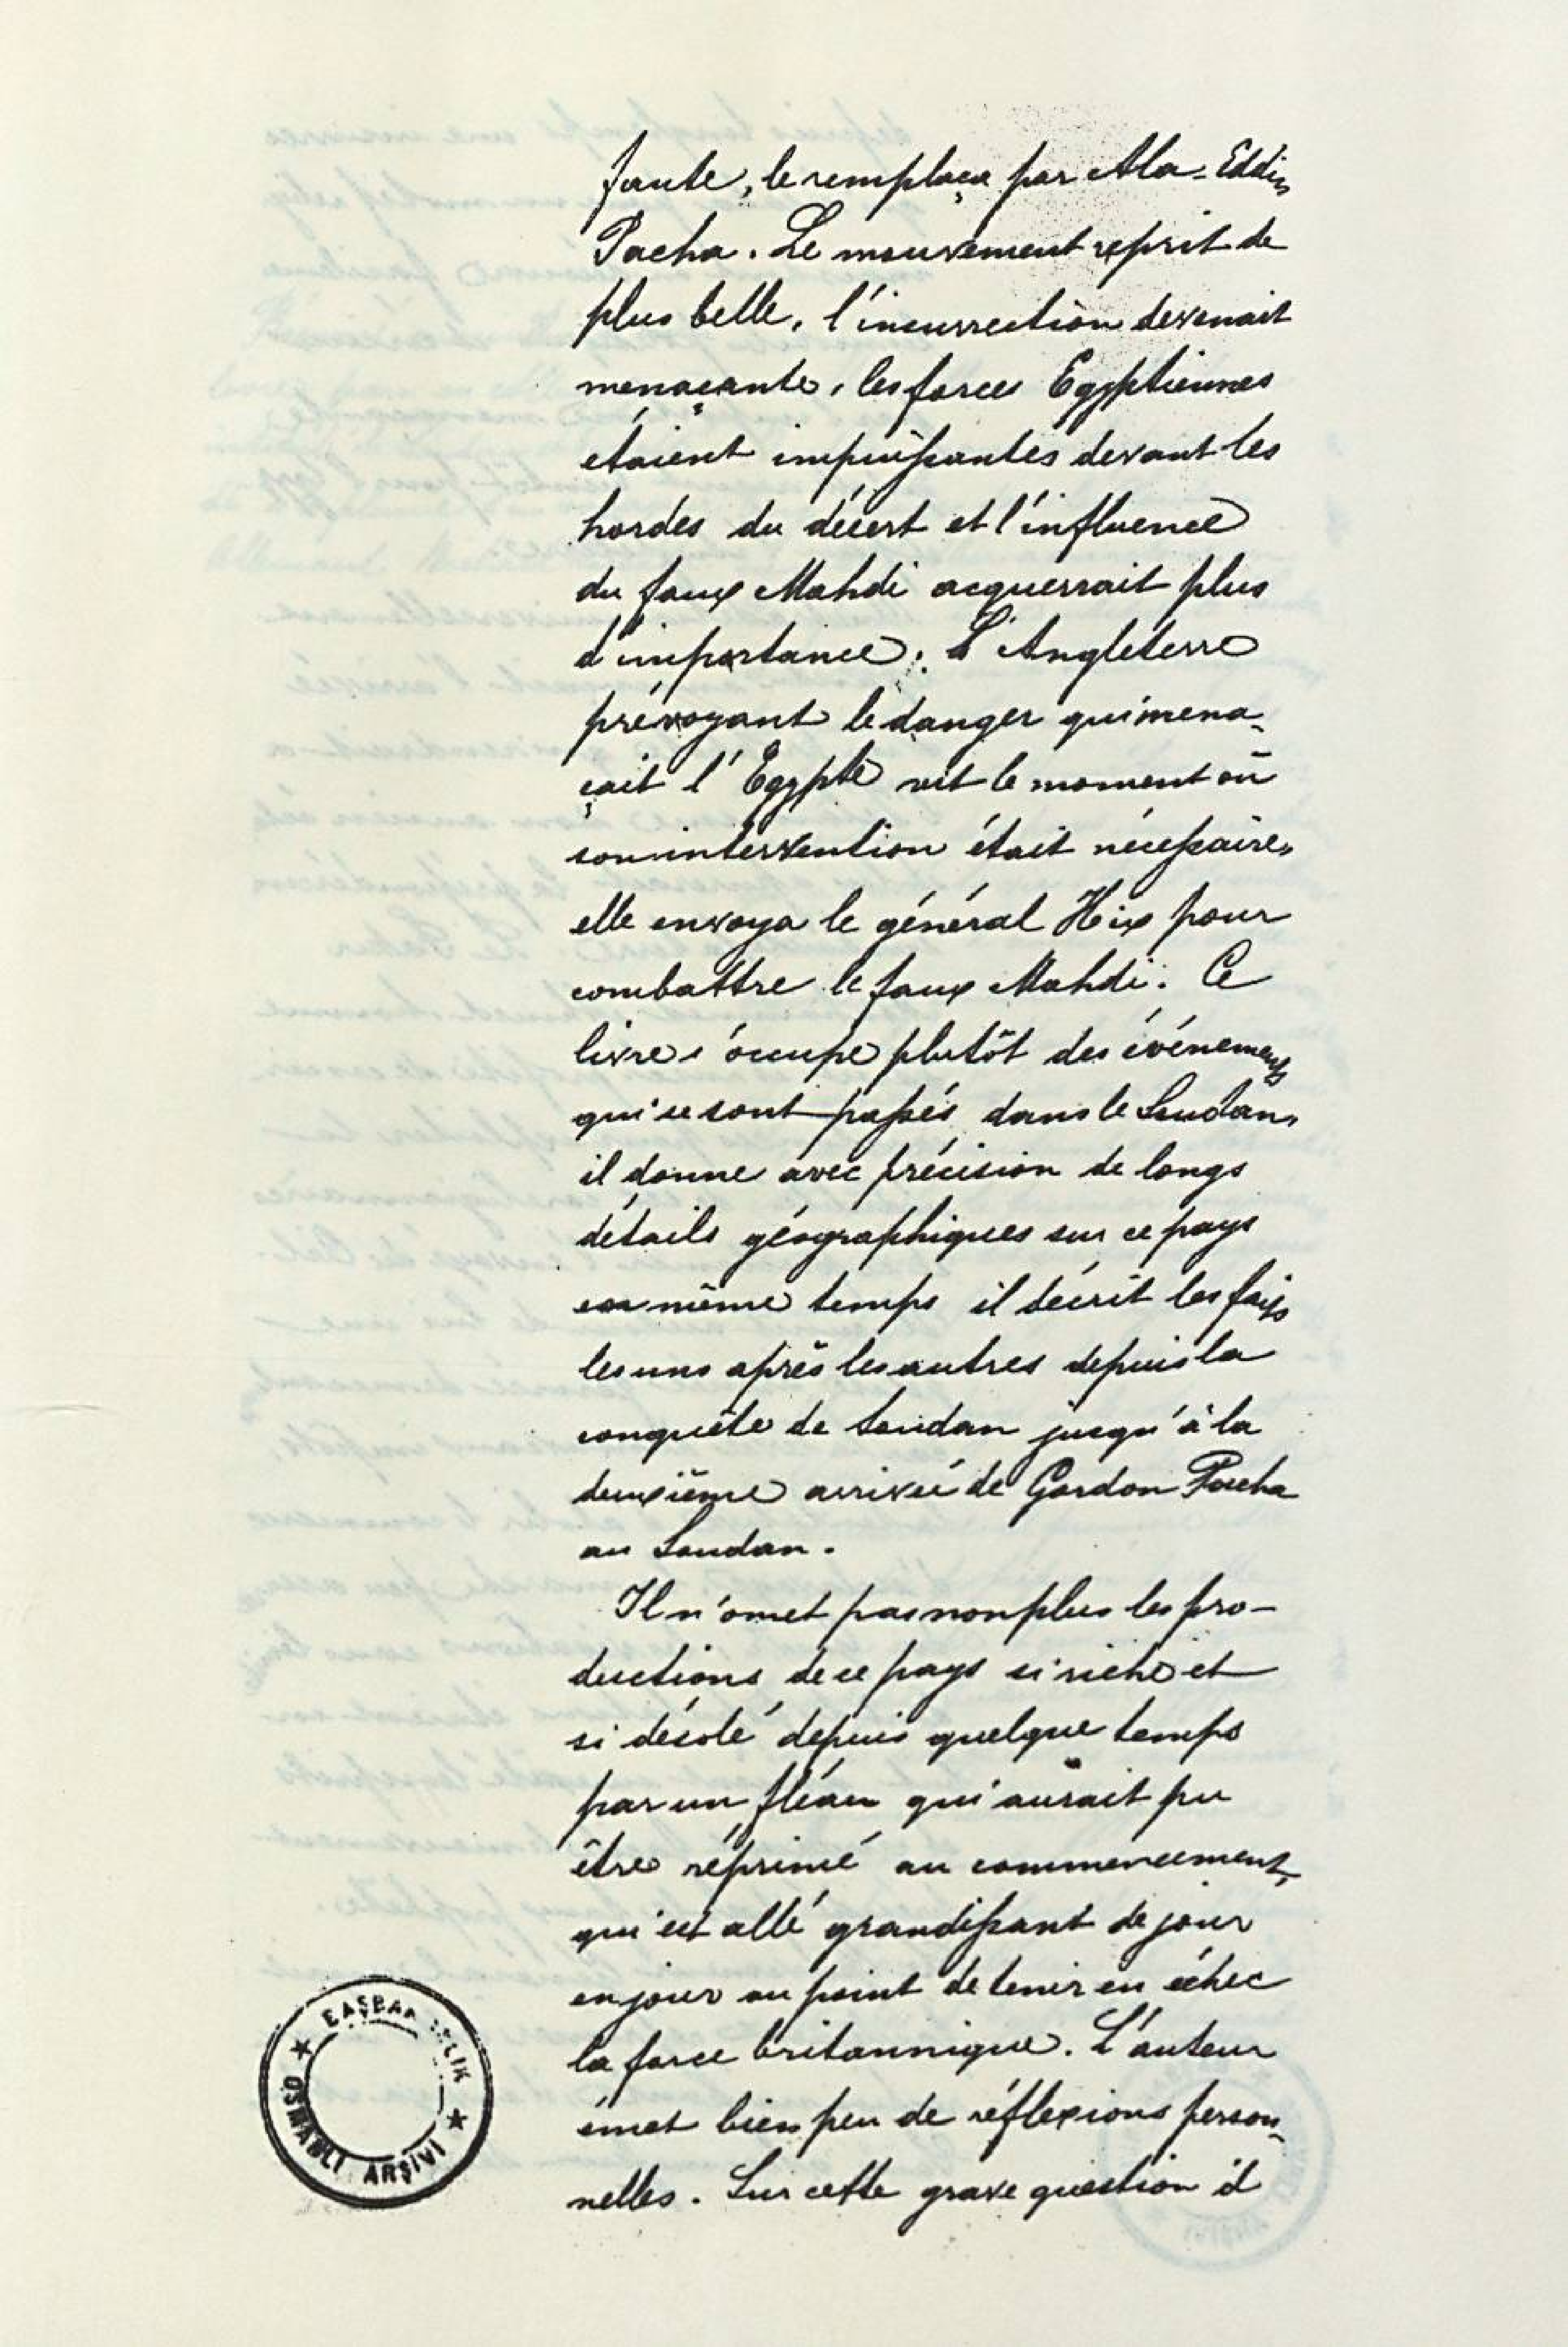 faute, le remplaça par Ala-Eddin
Pacha. Le mouvement reprit de
plus belle, l'insurrection devenait
menaçante, les forces Egyptiennes
étaient impuissantes devant les
hordes du désert et l'influence
du faux Mahdi acquerrait plus
d'importance. L'Angleterre
prévoyant le danger qui mena-
çait l'Egypte vit le moment où
son intervention était nécessaire,
elle envoya le général Hix pour
combattre le faux Mahdi. Ce
livre s'occupe plutôt des événements
qui se sont passés dans le Soudan,
il donne avec précision de longs
détails géographiques sur ce pays
en même temps il décrit les faits
les uns après les autres depuis la
conquête de Soudan jusqu'à la
deuxième arrivée de Gordon Pacha
au Soudan.
Il n'omet pas non plus les pro-
ductions de ce pays si riche et
si désolé depuis quelque temps
par un fléau qui aurait pu
être réprimé au commencement,
qui est allé grandissant de jour
en jour au point de tenir en échec
la force britannique. L'auteur
émet bien peu de réflexions person-
nelles. Sur cette grave question il
OSMANLI ARŞİVİ